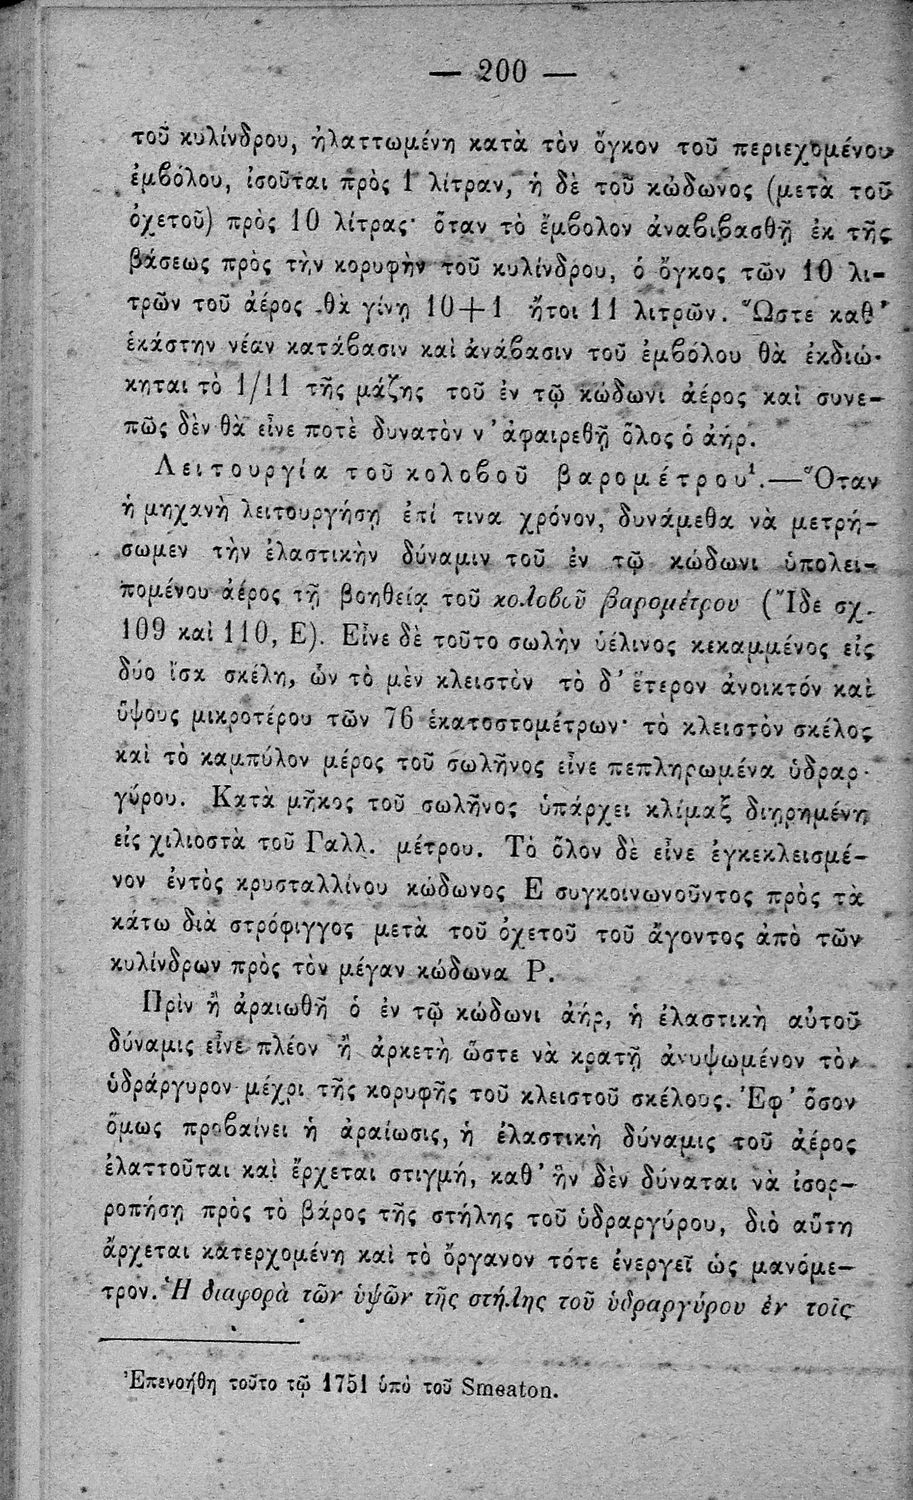 — 200 —
τοῦ κυλίνδρου, ἠλαττωμένη κατὰ τὸν ὄγκον τοῦ περιεχομένου
ἐμβόλου, ἰσοῦται πρὸς 1 λίτραν, ἡ δὲ τοῦ κώδωνος (μετὰ τοῦ
ὀχετοῦ) πρὸς 10 λίτρας· ὅταν τὸ ἔμβολον ἀναβιβασθῇ ἐκ τῆς
βάσεως πρὸς τὴν κορυφὴν τοῦ κυλίνδρου, ὁ ὄγκος τῶν 10 λι-
τρῶν τοῦ ἀέρος θὰ γίνῃ 10+1 ἤτοι 11 λιτρῶν. Ὥστε καθ’
ἑκάστην νέαν κατάβασιν καὶ ἀνάβασιν τοῦ ἐμβόλου θὰ ἐκδιώ-
κηται τὸ 1/11 τῆς μάζης τοῦ ἐν τῷ κώδωνι ἀέρος καὶ συνε-
πῶς δὲν θὰ εἶνε ποτὲ δυνατὸν ν’ ἀφαιρεθῇ ὅλος ὁ ἀήρ.
Λειτουργία τοῦ κολοβοῦ βαρομέτρου¹.—Ὅταν
ἡ μηχανὴ λειτουργήσῃ ἐπί τινα χρόνον, δυνάμεθα νὰ μετρή-
σωμεν τὴν ἐλαστικὴν δύναμιν τοῦ ἐν τῷ κώδωνι ὑπολει-
πομένου ἀέρος τῇ βοηθείᾳ τοῦ κολοβοῦ βαρομέτρου (Ἴδε σχ.
109 καὶ 110, Ε). Εἶνε δὲ τοῦτο σωλὴν ὑέλινος κεκαμμένος εἰς
δύο ἴσα σκέλη, ὧν τὸ μὲν κλειστὸν τὸ δ’ ἕτερον ἀνοικτόν καὶ
ὕψους μικροτέρου τῶν 76 ἑκατοστομέτρων· τὸ κλειστὸν σκέλος
καὶ τὸ καμπύλον μέρος τοῦ σωλῆνος εἶνε πεπληρωμένα ὑδραρ-
γύρου. Κατὰ μῆκος τοῦ σωλῆνος ὑπάρχει κλίμαξ διῃρημένη
εἰς χιλιοστὰ τοῦ Γαλλ. μέτρου. Τὸ ὅλον δὲ εἶνε ἐγκεκλεισμέ-
νον ἐντὸς κρυσταλλίνου κώδωνος Ε συγκοινωνοῦντος πρὸς τὰ
κάτω διὰ στρόφιγγος μετὰ τοῦ ὀχετοῦ τοῦ ἄγοντος ἀπὸ τῶν
κυλίνδρων πρὸς τὸν μέγαν κώδωνα Ρ.
Πρὶν ἢ ἀραιωθῇ ὁ ἐν τῷ κώδωνι ἀήρ, ἡ ἐλαστικὴ αὐτοῦ
δύναμις εἶνε πλέον ἢ ἀρκετὴ ὥστε νὰ κρατῇ ἀνυψωμένον τὸν
ὑδράργυρον μέχρι τῆς κορυφῆς τοῦ κλειστοῦ σκέλους. Ἐφ’ ὅσον
ὅμως προβαίνει ἡ ἀραίωσις, ἡ ἐλαστικὴ δύναμις τοῦ ἀέρος
ἐλαττοῦται καὶ ἔρχεται στιγμή, καθ’ ἣν δὲν δύναται νὰ ἰσορ-
ροπήσῃ πρὸς τὸ βάρος τῆς στήλης τοῦ ὑδραργύρου, διὸ αὕτη
ἄρχεται κατερχομένη καὶ τὸ ὄργανον τότε ἐνεργεῖ ὡς μανόμε-
τρον. Ἡ διαφορὰ τῶν ὑψῶν τῆς στήλης τοῦ ὑδραργύρου ἐν τοῖς
Ἐπενοήθη τοῦτο τῷ 1751 ὑπὸ τοῦ Smeaton.